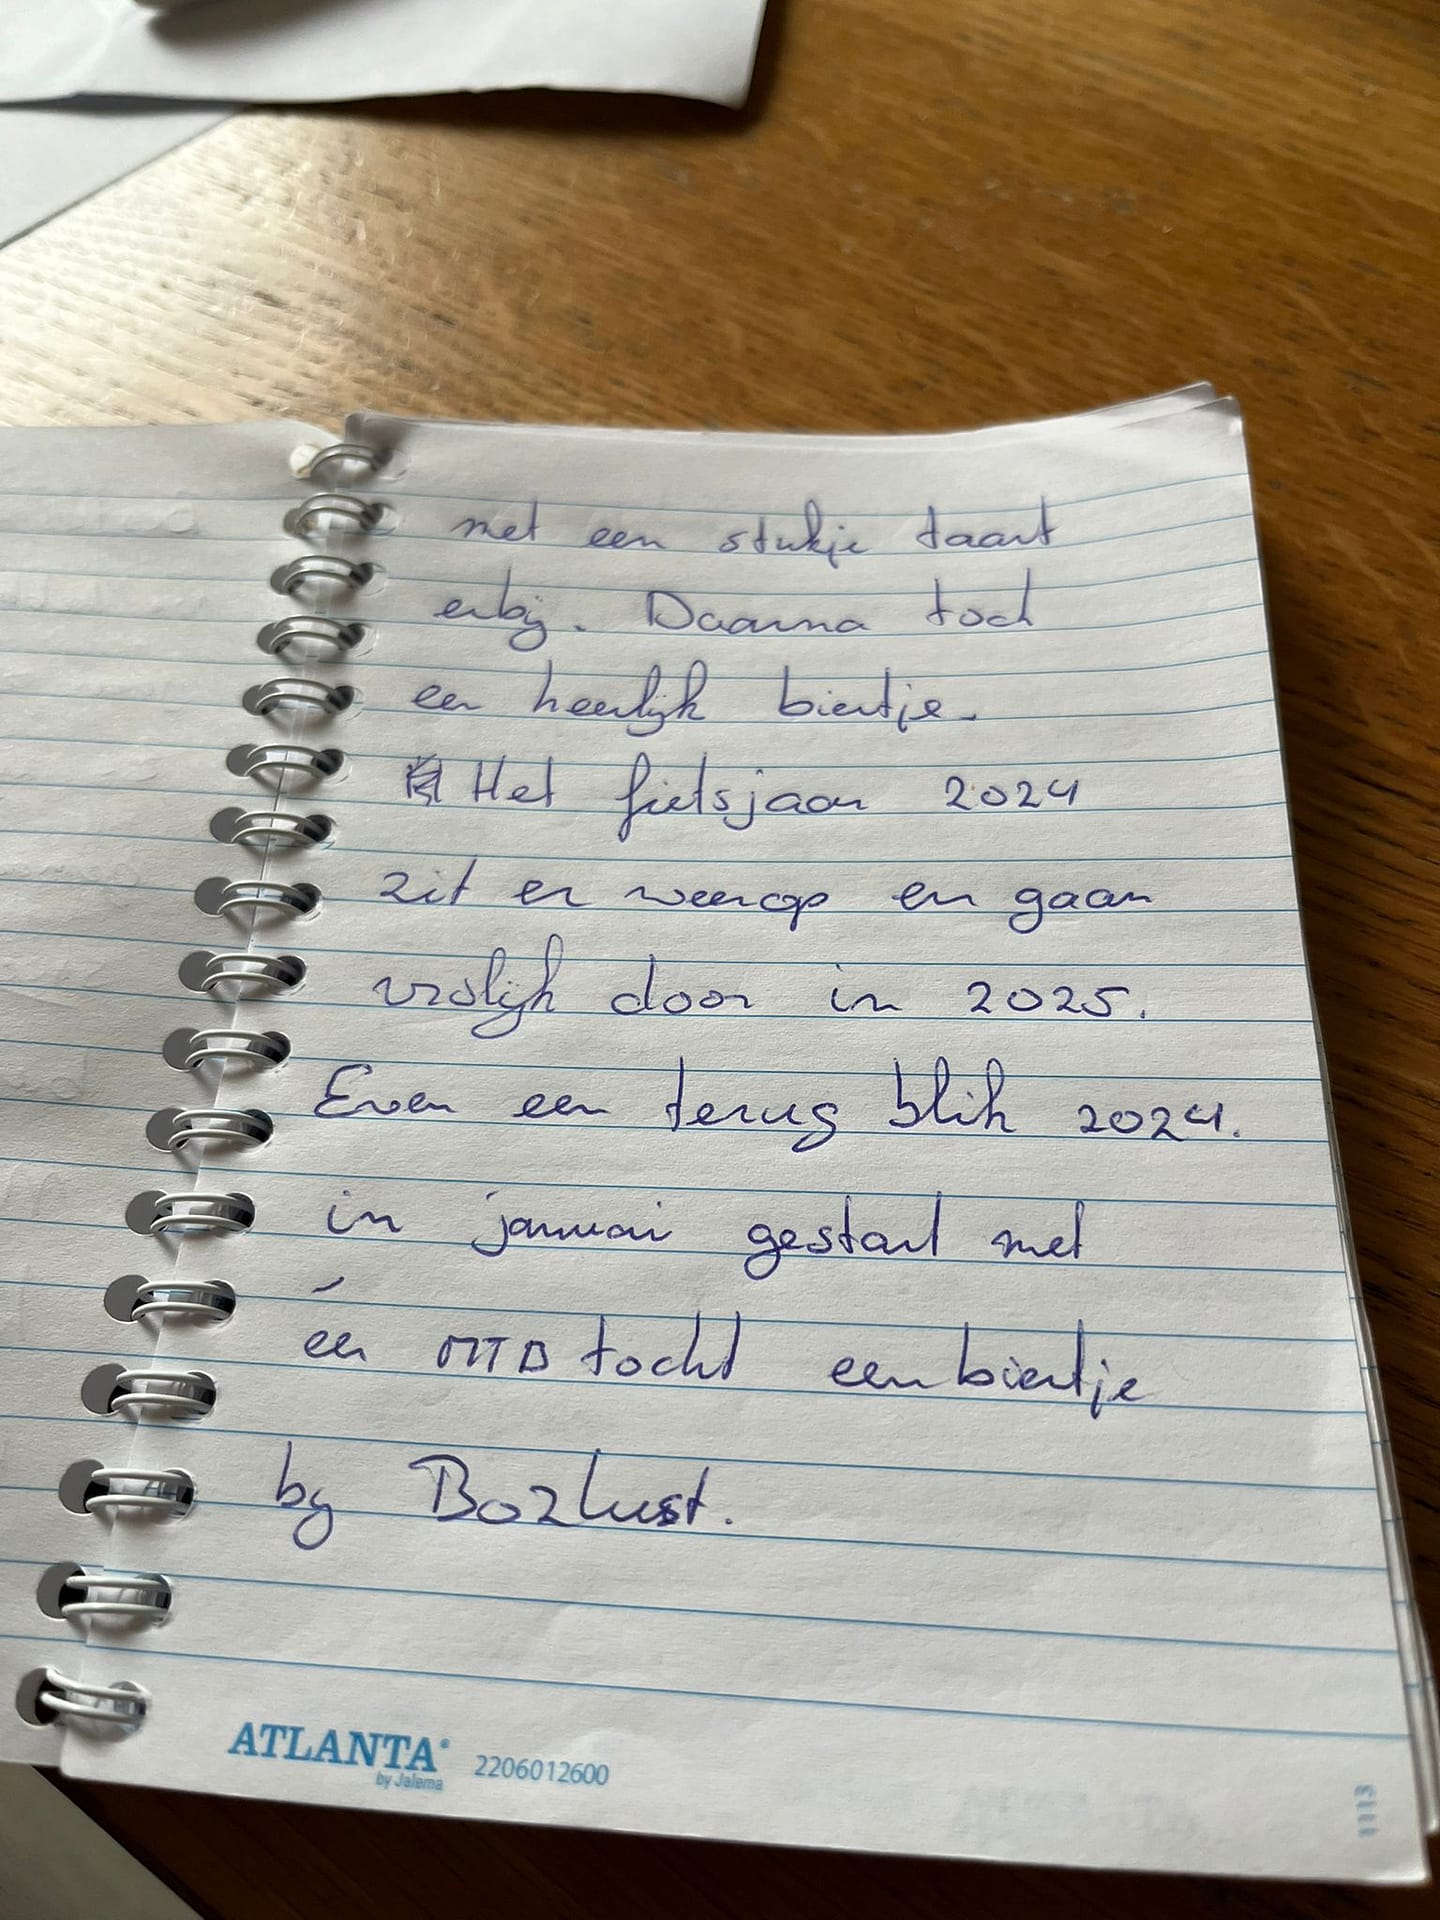 met een stukje taart
erbij. Daarna toch
een heerlijk biertje.
Het fietsjaar 2024
zit er weer op en gaan
vrolijk door in 2025.
Even een terug blik 2024.
in januari gestart met
één MTB tocht een biertje
by Bozlust.
ATLANTA®
by Jalema
2206012600